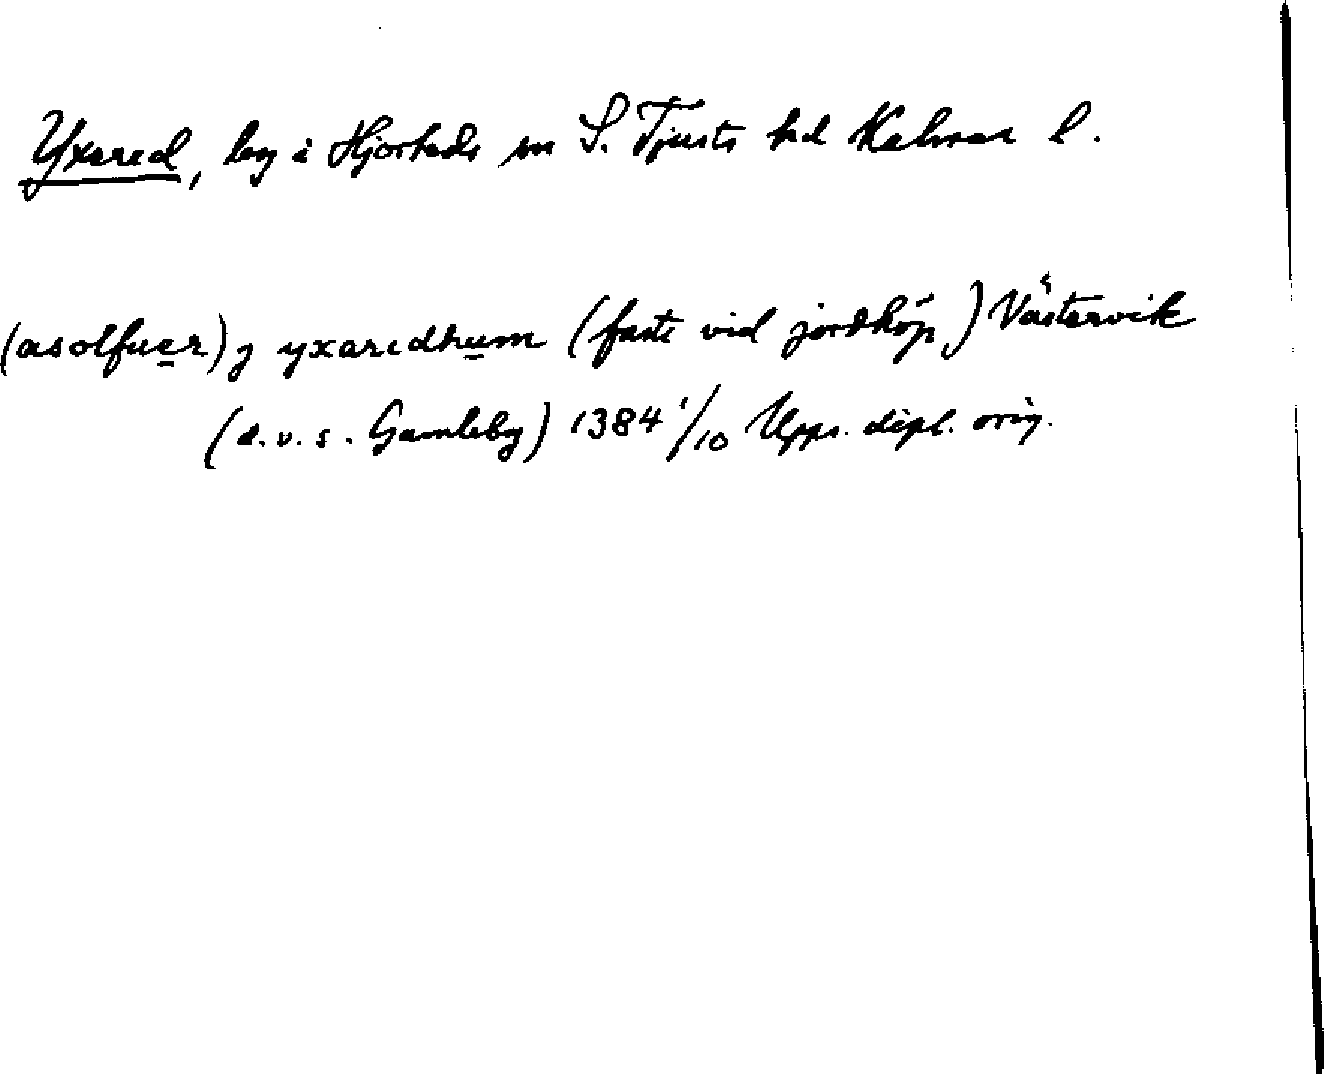 Yxered, by i Hjorteds sn S. Tjusts hd Kalmar l.
(asolfuer) j yxaredhum (faste vid jordköp) Västervik
(d.v.s. Gamleby) 1384 1/10 Upps. dipl. orig.